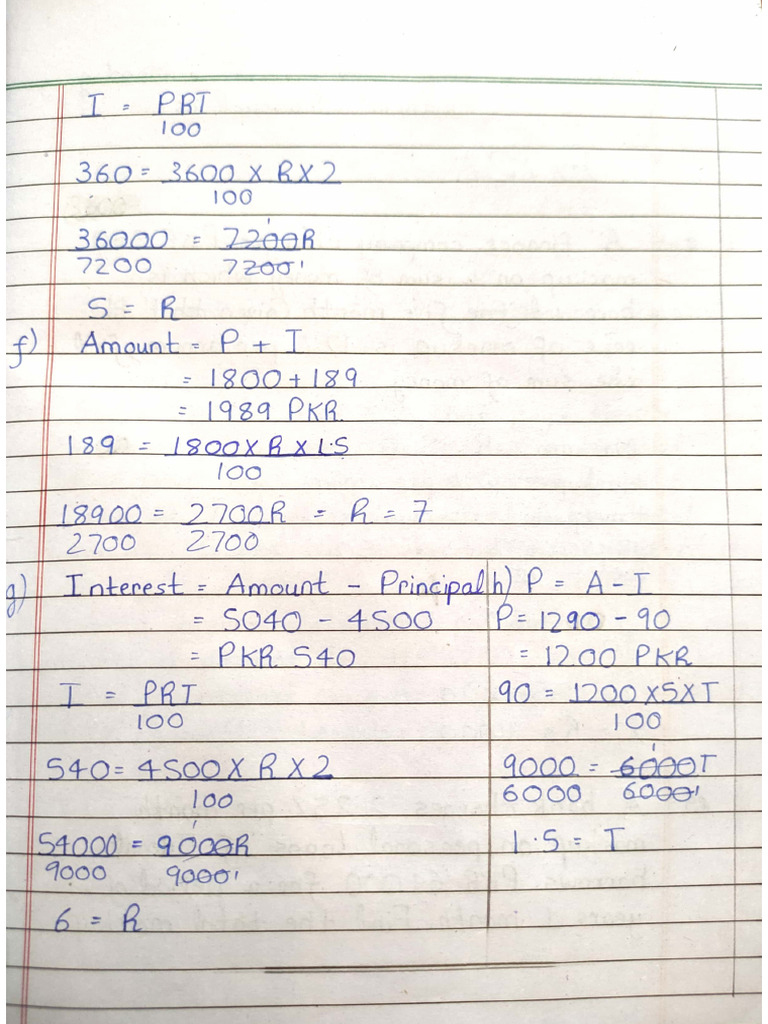 I = PRT
100
360 = 3600 X R X 2
100
36000 = 7200R
7200 7200
5 = R
f) Amount = P + I
= 1800 + 189
= 1989 PKR
189 = 1800 X R X 1.5
100
18900 = 2700R = R = 7
2700 2700
g) Interest = Amount - Principal
= 5040 - 4500
= PKR 540
I = PRT
100
540 = 4500 X R X 2
100
54000 = 9000R
9000 9000
6 = R
h) P = A - I
P = 1290 - 90
= 1200 PKR
90 = 1200 X 5 X T
100
9000 = 6000T
6000 6000
1.5 = T